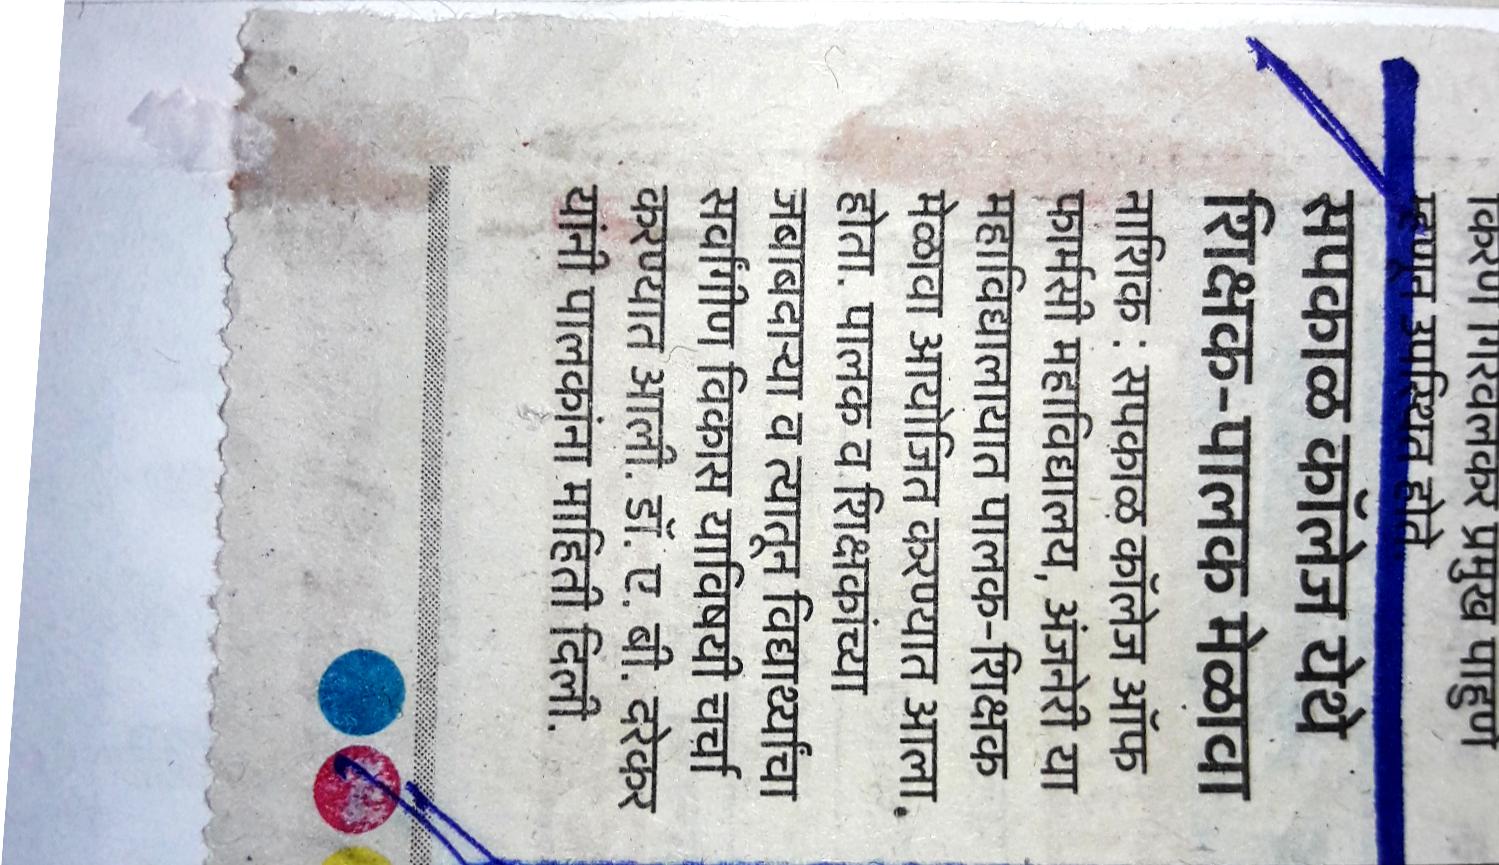 किरण गिरवलकर प्रमुख पाहुणे
म्हणून उपस्थित होते.
सपकाळ कॉलेज येथे
शिक्षक-पालक मेळावा
नाशिक : सपकाळ कॉलेज ऑफ
फार्मसी महाविद्यालय, अंजनेरी या
महाविद्यालायात पालक-शिक्षक
मेळावा आयोजित करण्यात आला.
होता. पालक व शिक्षकांच्या
जबाबदाऱ्या व त्यातून विद्यार्थ्यांचा
सर्वांगीण विकास याविषयी चर्चा
करण्यात आली. डॉ. ए. बी. दरेकर
यांनी पालकांना माहिती दिली.